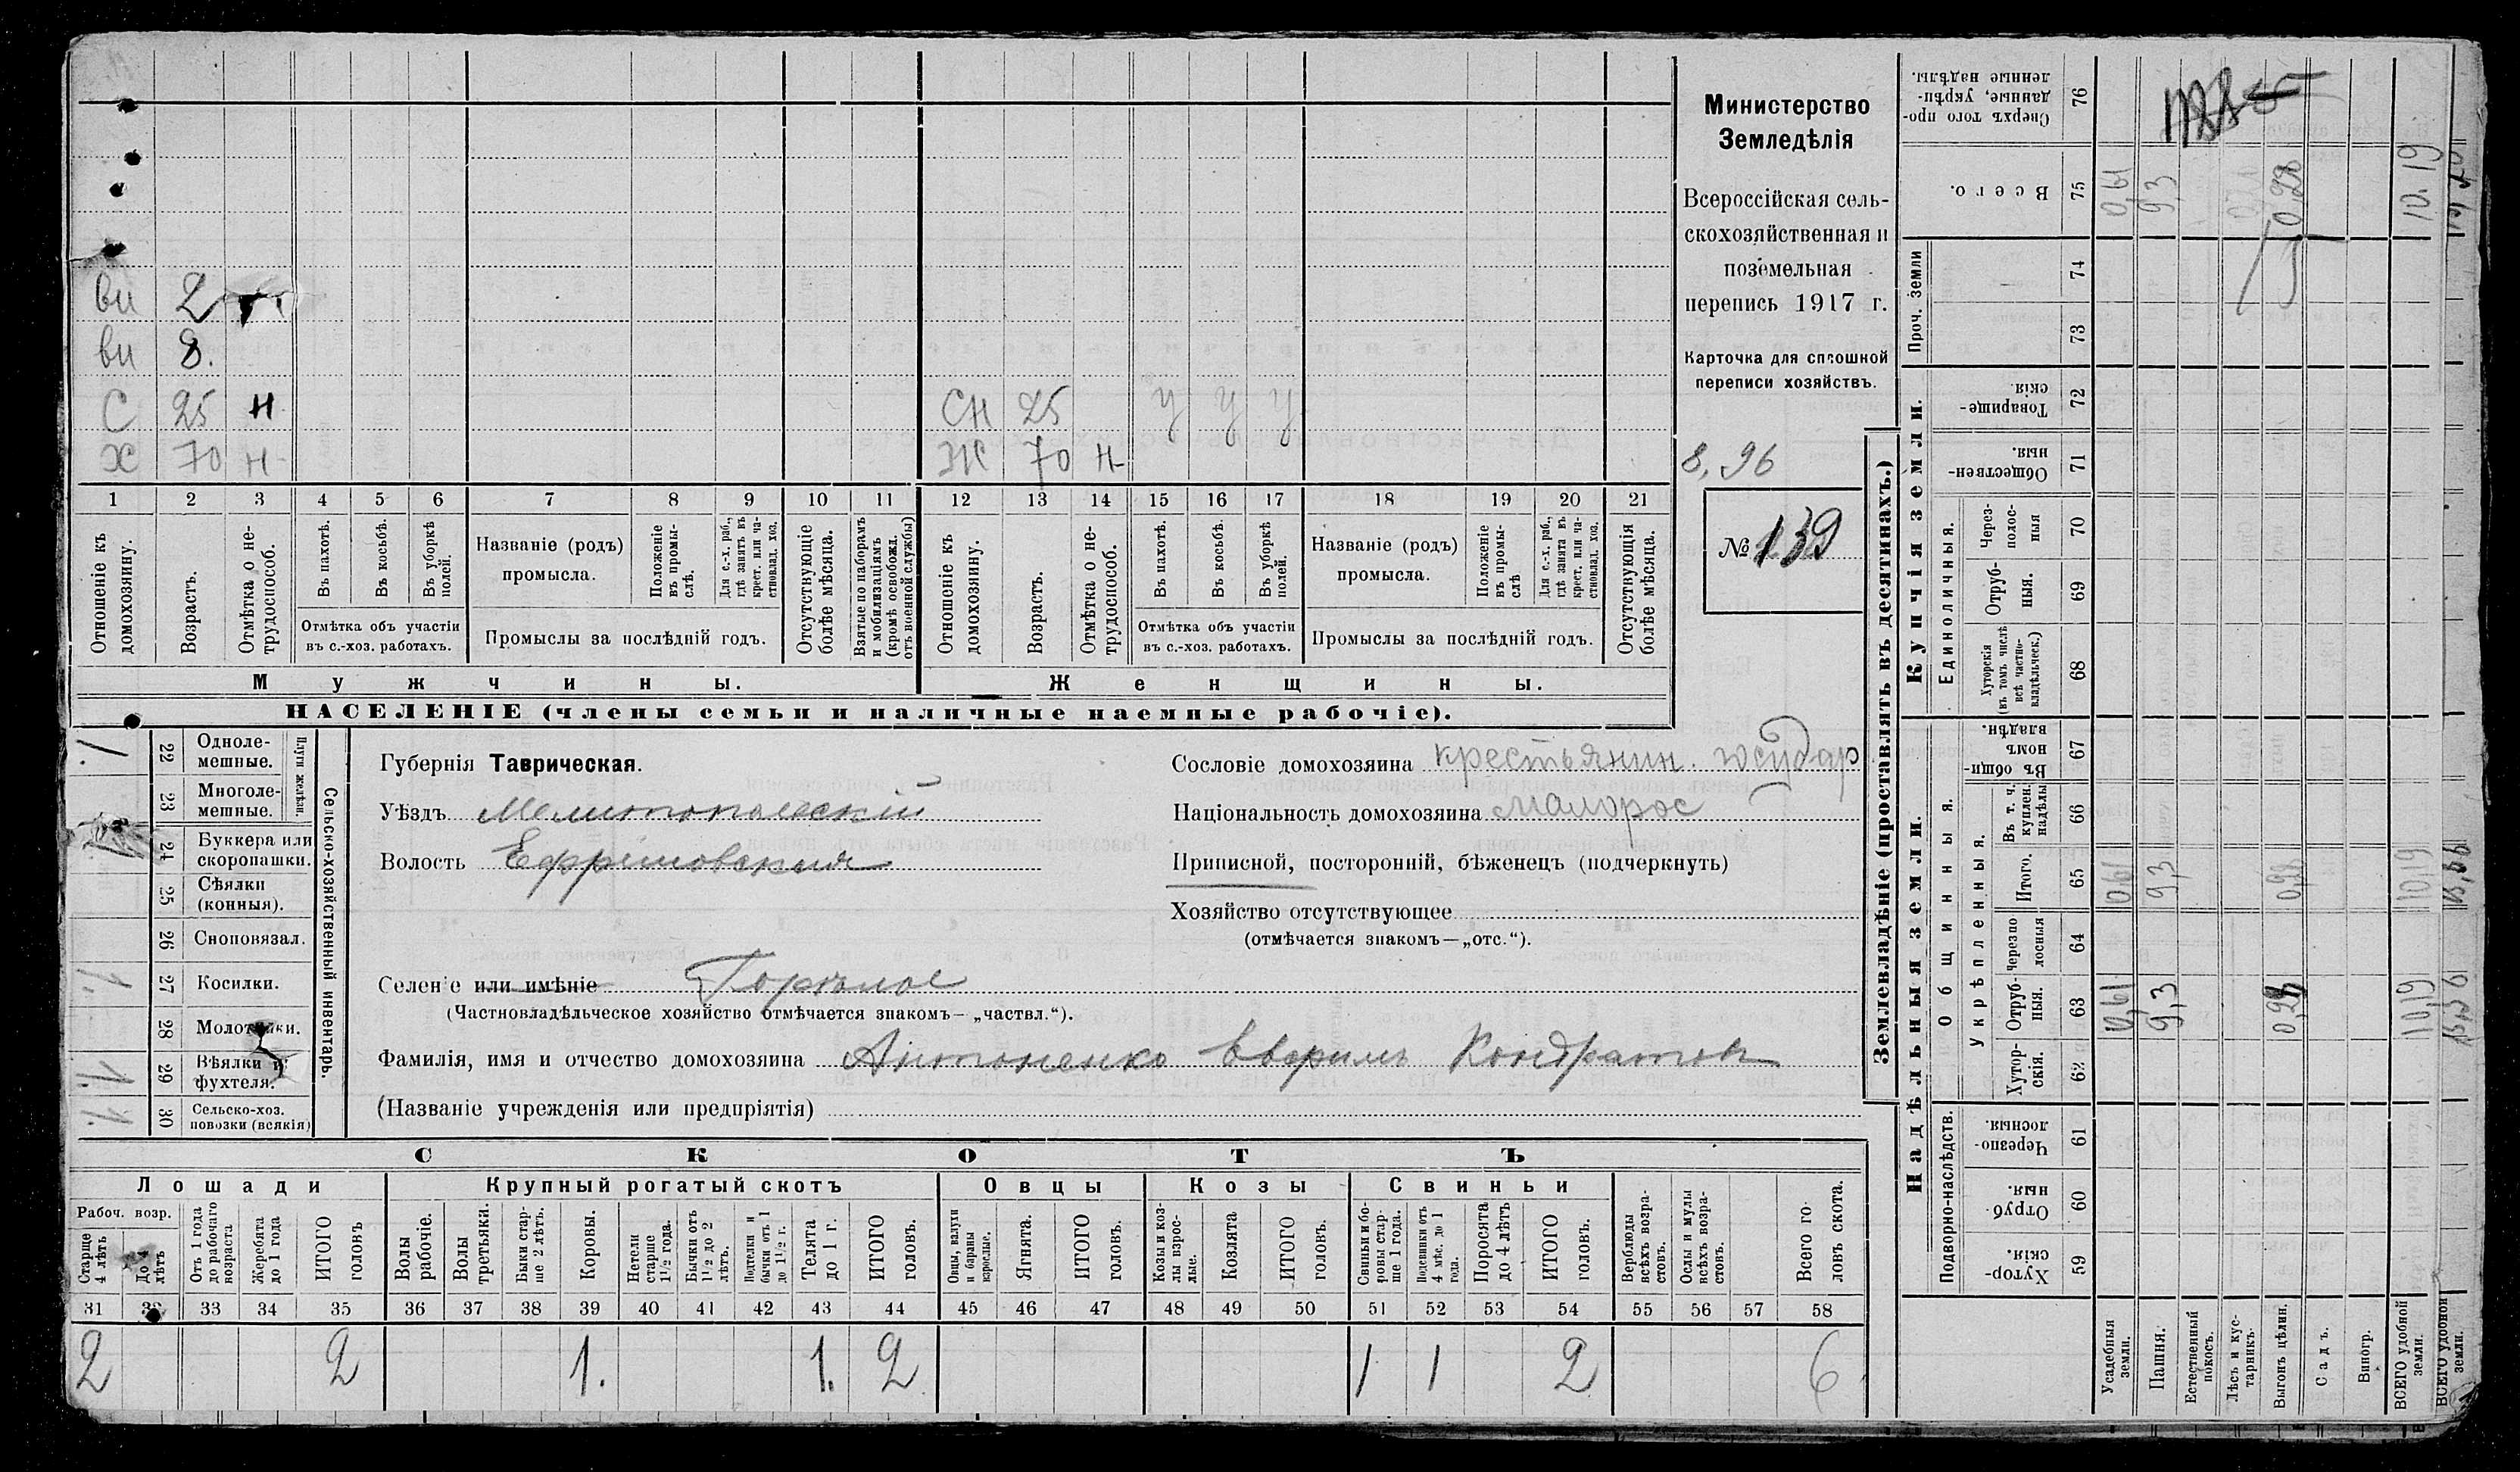 Министерство
Земледѣлія
Всероссійская сель-
скохозяйственная и
поземельная
перепись 1917 г.
Карточка для сплошной
переписи хозяйствъ.
8,96
№ 139
ви 2
ви 8.
С 25 н
Х 70 н
СН 25 У У У
Ж 70 н
1 2 3 4 5 6 7 8 9 10 11 12 13 14 15 16 17 18 19 20 21
Отношеніе къ домохозяину.
Возрастъ.
Отмѣтка о не-трудоспособ.
Въ пахотѣ.
Въ косьбѣ.
Въ уборкѣ полей.
Отмѣтка объ участіи
въ с.-хоз. работахъ.
Названіе (родъ)
промысла.
Положеніе въ промы-слѣ.
Для с.-х. раб., гдѣ занятъ въ крест. или ча-стновлад. хоз.
Промыслы за послѣдній годъ.
Отсутствующіе болѣе мѣсяца.
Взятые по наборамъ и мобилизаціямъ (кромѣ освобожд. отъ военной службы)
Отношеніе къ домохозяину.
Возрастъ.
Отмѣтка о не-трудоспособ.
Въ пахотѣ.
Въ косьбѣ.
Въ уборкѣ полей.
Отмѣтка объ участіи
въ с.-хоз. работахъ.
Названіе (родъ)
промысла.
Положеніе въ промы-слѣ
Для с.-х. раб., гдѣ занята въ крест. или ча-стновлад. хоз.
Промыслы за послѣдній годъ.
Отсутствующія болѣе мѣсяца.
Мужчины.
Женщины.
НАСЕЛЕНІЕ (члены семьи и наличные наемные рабочіе).
Сельско-хозяйственный инвентарь.
Плуги желѣзн.
22 Одноле-мешные. 1.
23 Многоле-мешные.
24 Буккера или скоропашки.
25 Сѣялки (конныя).
26 Сноповязал.
27 Косилки. 1.
28 Молотилки.
29 Вѣялки и фухтеля. 1.
30 Сельско-хоз. повозки (всякія) 1.
Губернія Таврическая.
Уѣздъ Мелитопольскій
Волость Ефремовская
Селеніе или имѣніе Горѣлое
(Частновладѣльческое хозяйство отмѣчается знакомъ— „частвл.“).
Фамилія, имя и отчество домохозяина Антоненко Кондратов
(Названіе учрежденія или предпріятія)
Сословіе домохозяина крестьянин. государ
Національность домохозяина малорос
Приписной, посторонній, бѣженецъ (подчеркнуть)
Хозяйство отсутствующее
(отмѣчается знакомъ—„отс.“).
СКОТЪ
Лошади
Крупный рогатый скотъ
Овцы
Козы
Свиньи
Рабоч. возр.
Старше 4 лѣтъ
До 4 лѣтъ
Отъ 1 года до рабочаго возраста
Жеребята до 1 года
ИТОГО головъ
Волы рабочіе.
Волы третьяки.
Быки стар-ше 2 лѣтъ.
Коровы.
Нетели старше 1½ года.
Бычки отъ 1½ до 2 лѣтъ.
Подтелки и бычки отъ 1 до 1½ г.
Телята до 1 г.
ИТОГО головъ.
Овцы, валухи и бараны взрослые.
Ягнята.
ИТОГО головъ.
Козы и коз-лы взрос-лые.
Козлята
ИТОГО головъ.
Свиньи и бо-ровы стар-ше 1 года.
Подсвинки отъ 4 мѣс. до 1 года.
Поросята до 4 лѣтъ
ИТОГО головъ.
Верблюды всѣхъ возра-стовъ.
Ослы и мулы всѣхъ возра-стовъ.
Всего го-ловъ скота.
31 32 33 34 35 36 37 38 39 40 41 42 43 44 45 46 47 48 49 50 51 52 53 54 55 56 57 58
2 2 1. 1. 2 1 1 2 6
Землевладѣніе (проставлять въ десятинахъ.)
Надѣльныя земли.
Купчія земли.
Проч. земли
Подворно-наслѣдств.
Общинныя.
Укрѣпленныя.
Единоличныя.
Сверхъ того про-данные, укрѣп-ленные надѣлы. 76
Всего. 75 0,61 9,3 0,28 10,19
74
73
Товарище-скія 72
Обществен-ныя. 71
Через-полос-ныя 70
Отруб-ныя. 69
Хуторскія (въ томъ числѣ всѣ частно-владѣльческ.) 68
Въ общи-номъ владѣн. 67
Въ т. ч. куплен. надѣлы 66
Итого. 65 0,61 9,3 0,28 10,19
Черезпо-лосныя 64
Отруб-ныя. 63 0,61 9,3 0,28 10,19
Хутор-скія. 62
Черезпо-лосныя. 61
Отруб-ныя. 60
Хутор-скія. 59
Усадебныя земли.
Пашня.
Естественный покосъ.
Лѣсъ и кус-тарникъ.
Выгонъ цѣлин.
Садъ.
Виногр.
ВСЕГО удобной земли.
ВСЕГО удобной земли.